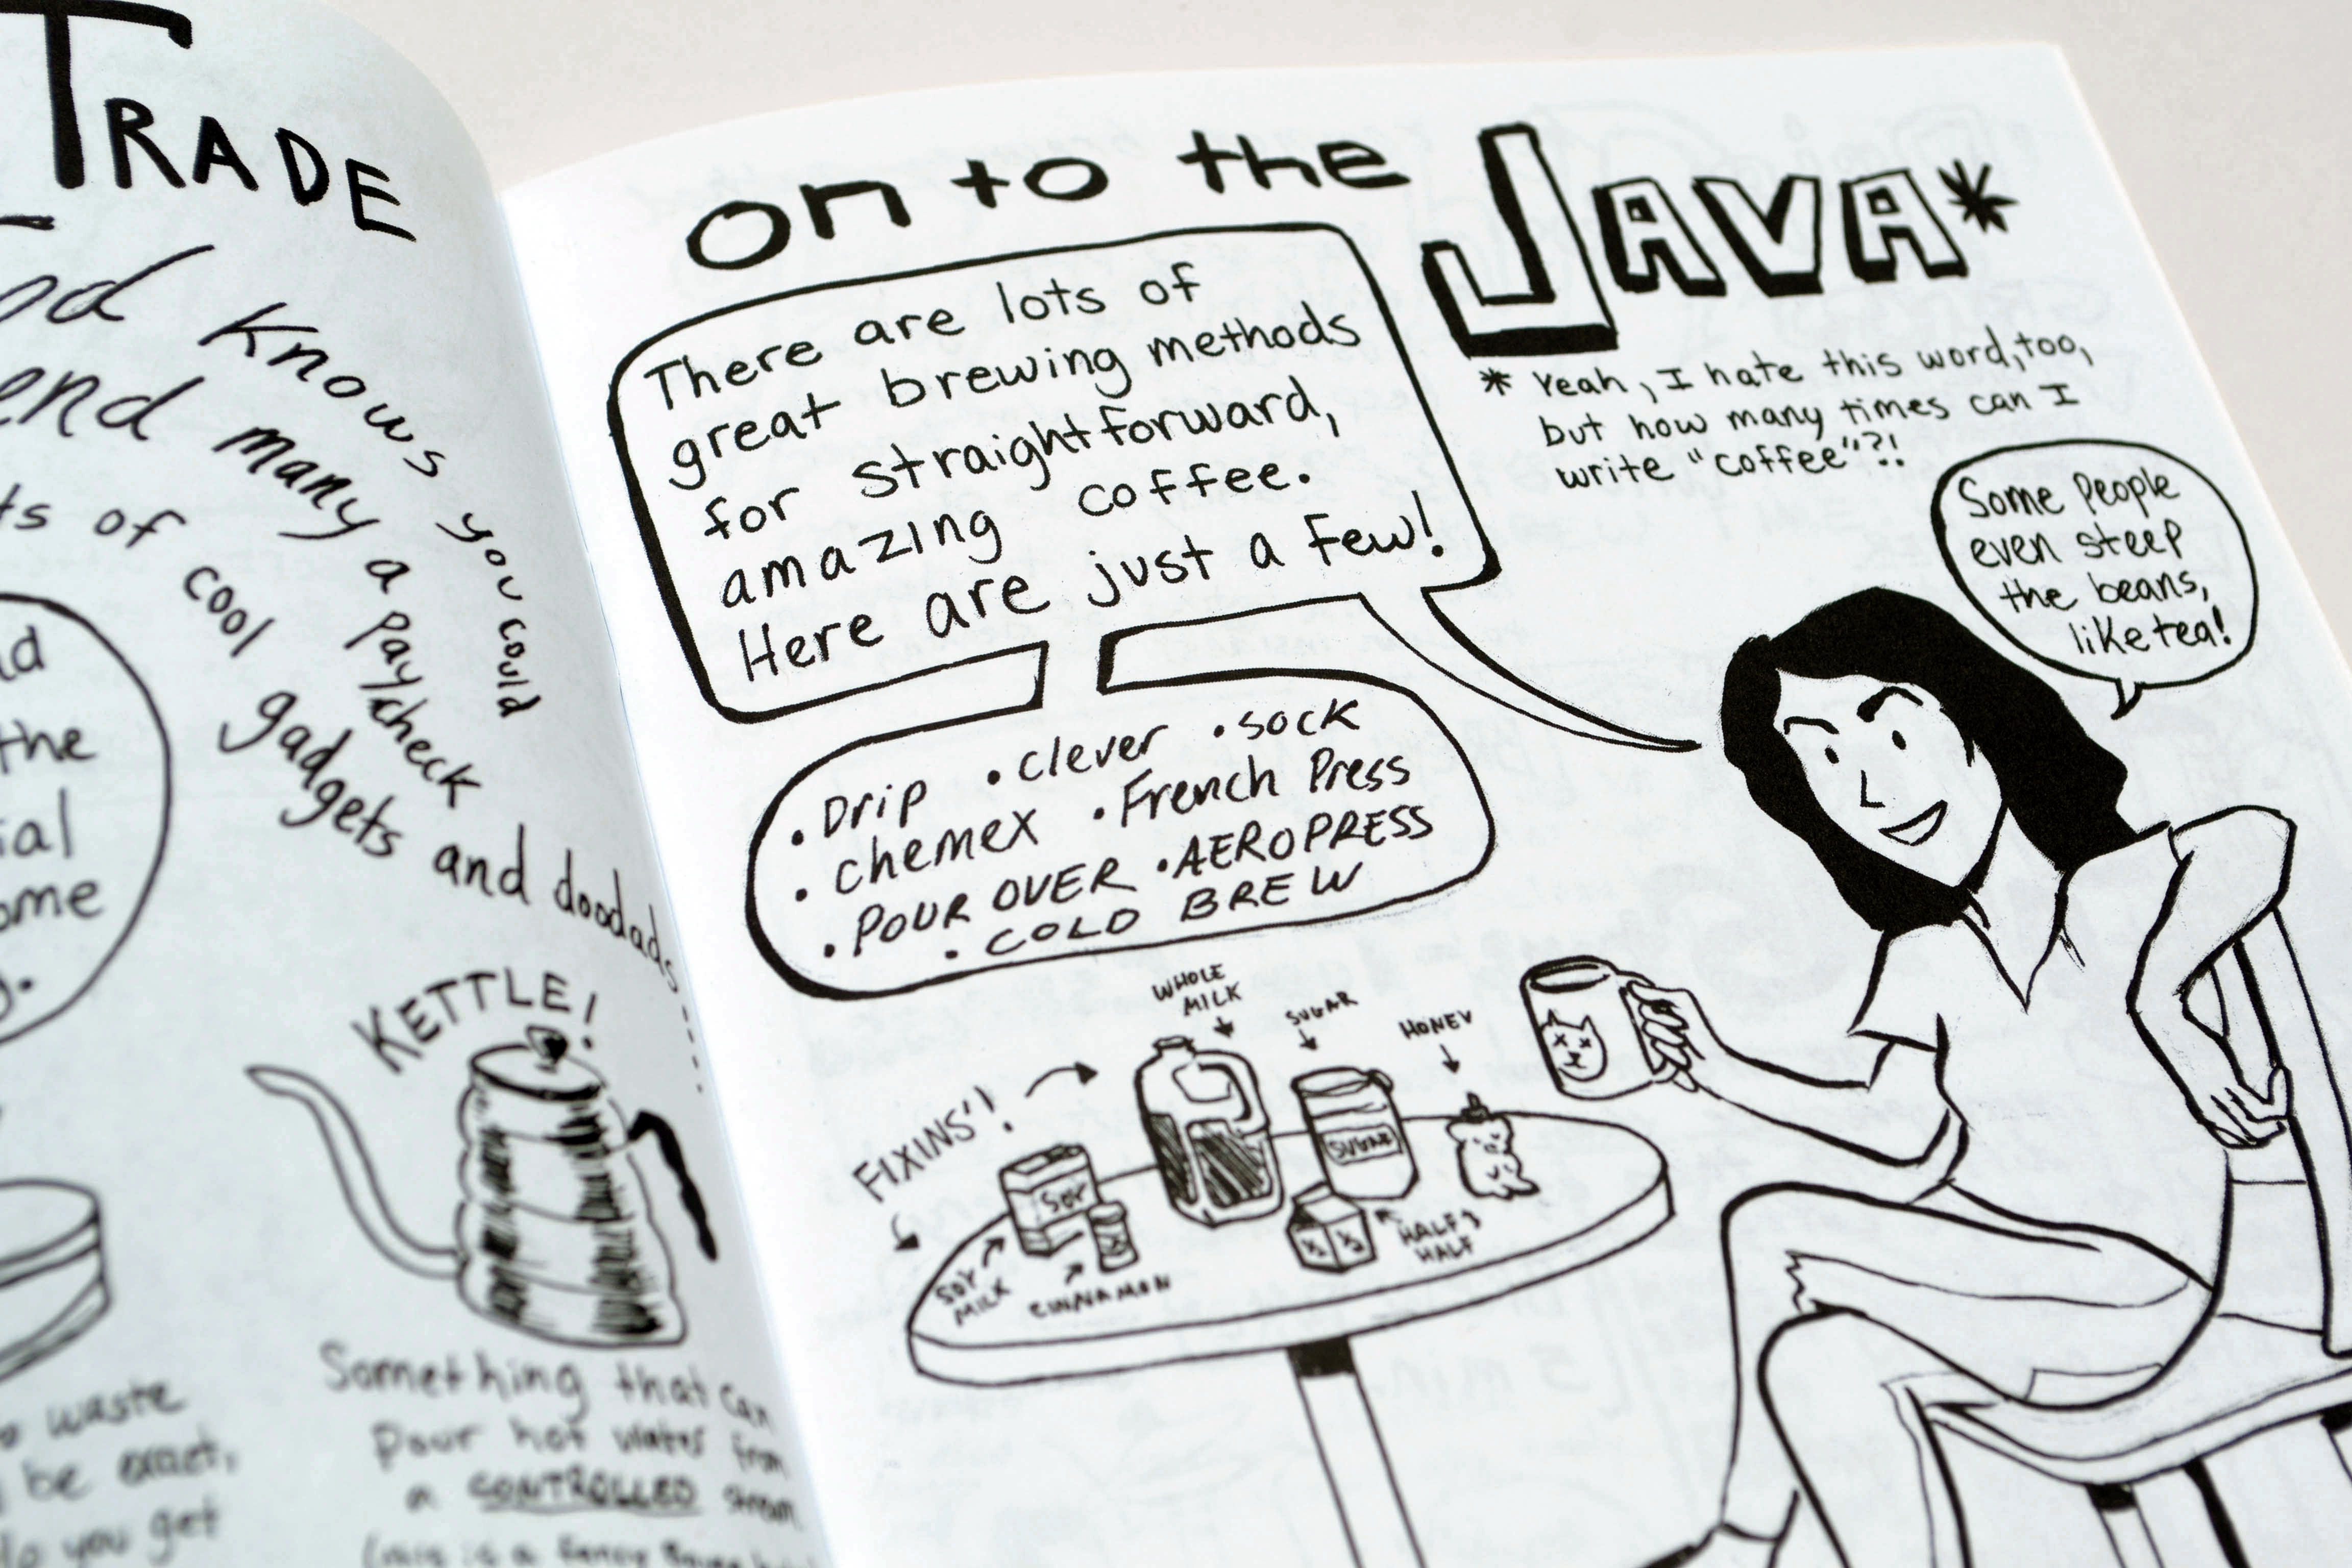 TRADE
knows you could
end many a paycheck
ts of cool gadgets and doodads....
the
ial
ome
KETTLE!
waste
be exact,
you get
Something that can
pour hot water from
a CONTROLLED stream
on to the JAVA*
There are lots of
great brewing methods
for straightforward,
amazing coffee.
Here are just a few!
* Yeah, I hate this word, too,
but how many times can I
write "coffee"?!
Some people
even steep
the beans,
like tea!
• Drip • clever • sock
• chemex • French Press
• POUR OVER • AEROPRESS
• COLD BREW
FIXINS'!
WHOLE
MILK
SUGAR
HONEY
SOY
SUGAR
½ ½
HALF &
HALF
SOY
MILK
CINNAMON